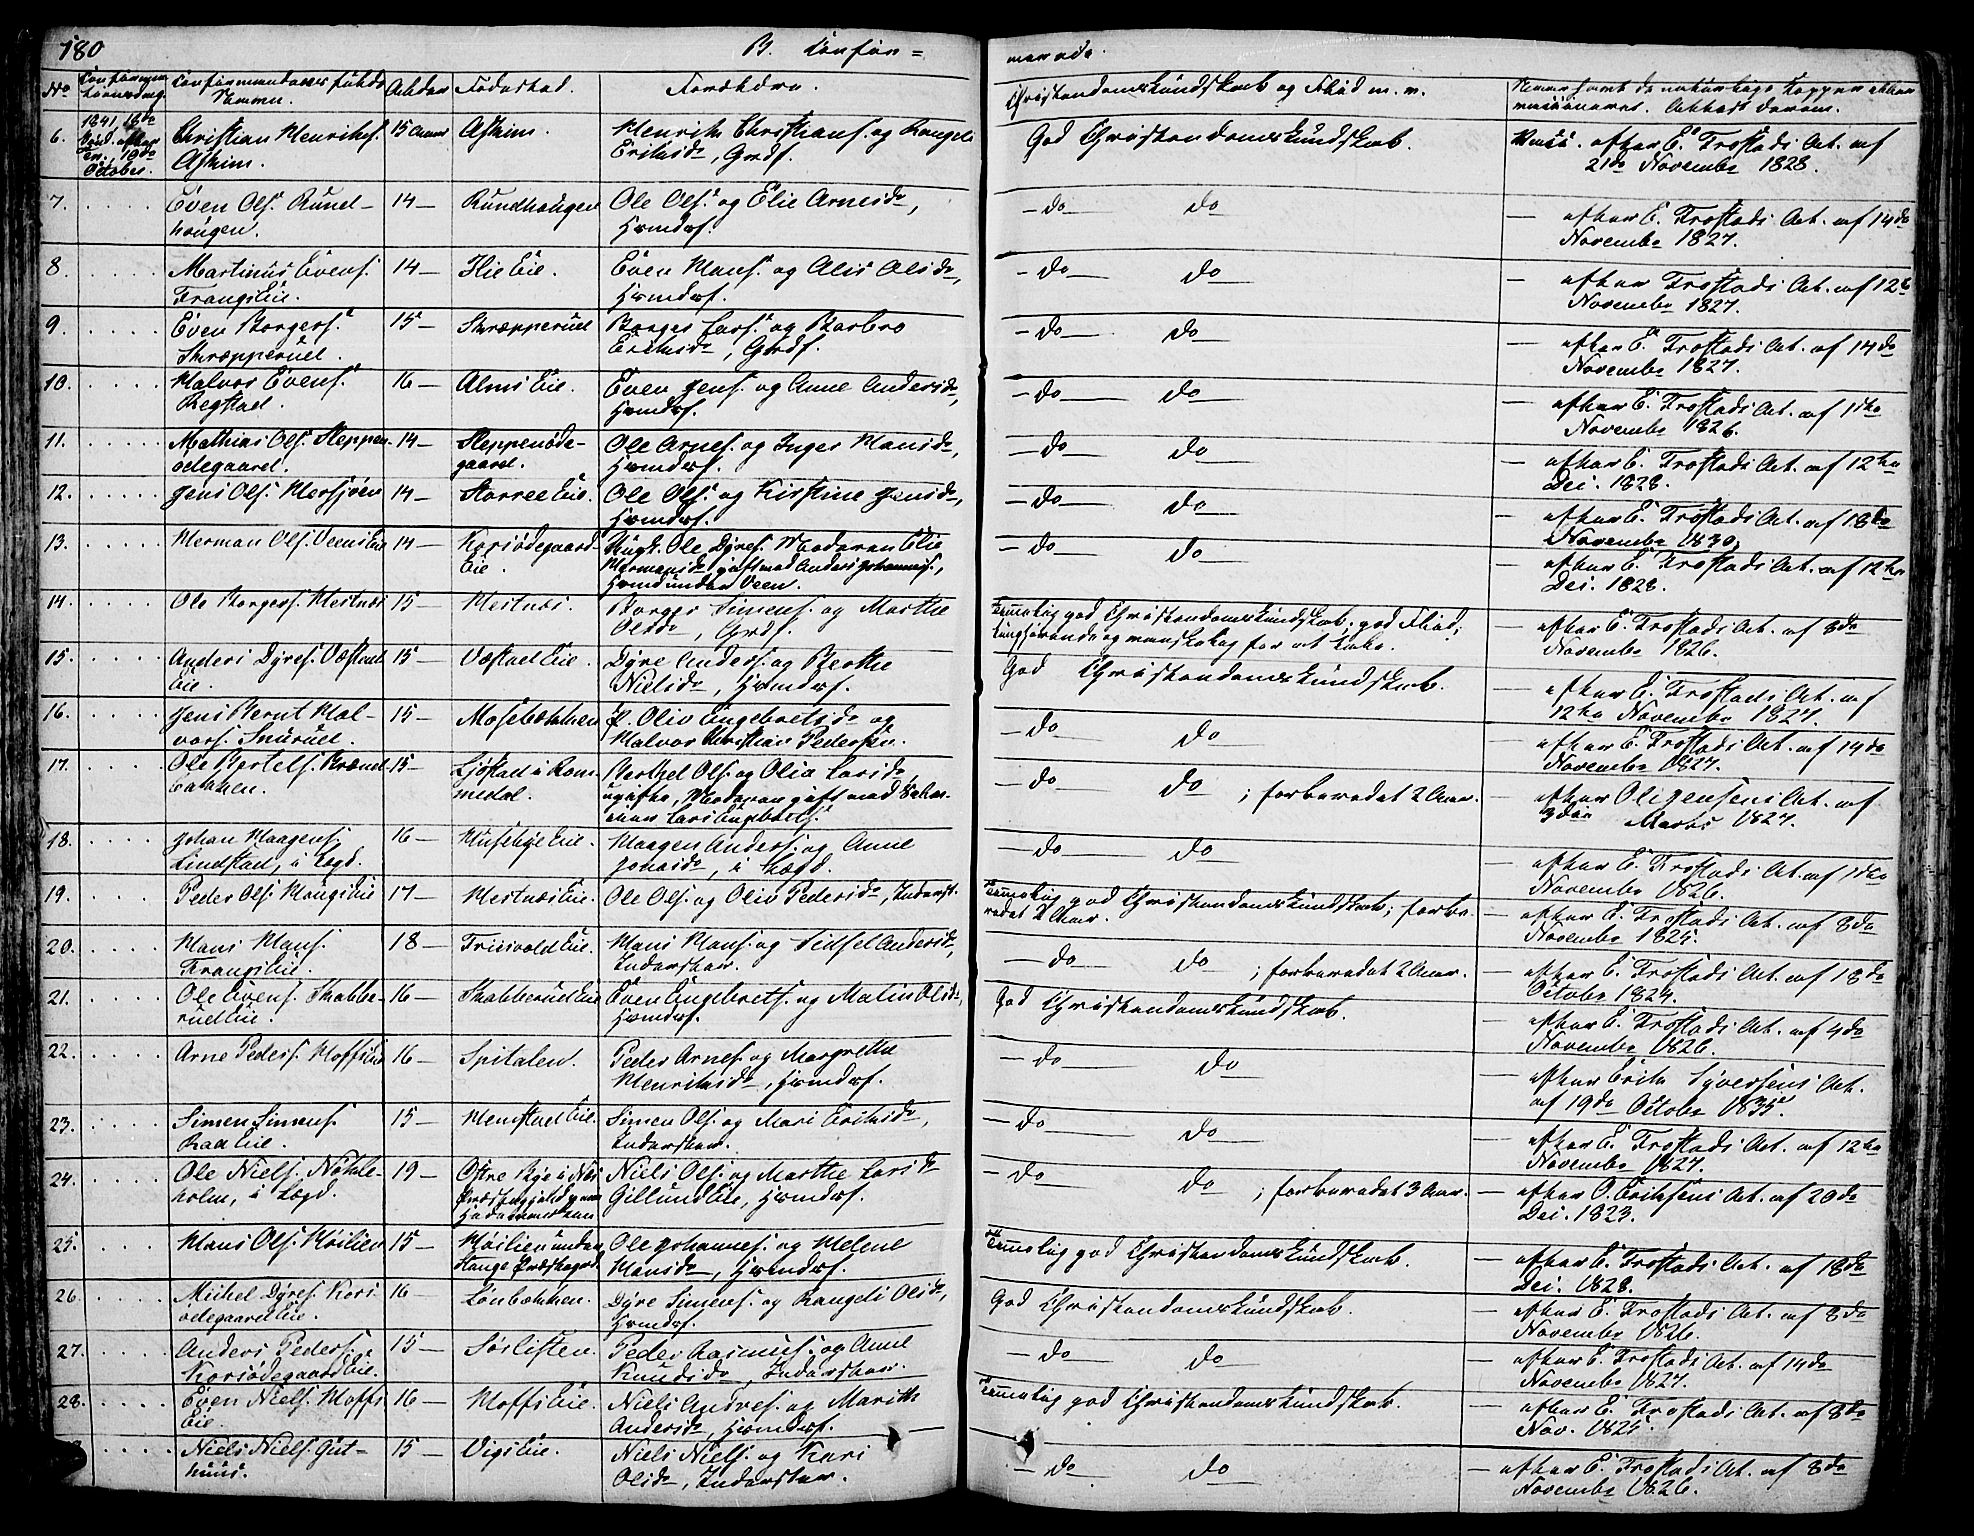 180
B. Confir=
merede.
No
Alder
Fødested.
Forældre.
Christendomskundskab og Flid m. v.
6.
1841, 18de
October.
Christian Henriks.
Askim.
15 Aar
Askim.
Henrik Christians. og Rangele
Eriksdr, Grdf.
God Christendomskundskab.
efter E. Frostads Att. af
21de November 1828.
7.
Even Ols. Rund-
hougen.
14 —
Rundhougen
Ole Ols. og Elie Arnesdr,
Huusmdsf.
— do — do —
— efter E. Frostads Att. af 14de
November 1827.
8.
Martinus Evens.
Frangs Eie.
14 —
Flie Eie.
Even Hans. og Alis Olsdr,
Huusmdsf.
— do — do —
— efter Frostads Att. af 12te
November 1827.
9.
Even Borgers.
Skrepperud.
15 —
Skrepperud
Borger Lars. og Barbro
Eriksdr, Grdf.
— do — do —
— efter E. Frostads Att. af 14de
November 1827.
10.
Halvor Evens.
Regstad.
16 —
Alms Eie.
Even Jens. og Anne Andersdr,
Huusmdsf.
— do — do —
— efter E. Frostads Att. af 11te
November 1826.
11.
Mathias Ols. Steppen-
ødegaard.
14 —
Steppenøde-
gaard.
Ole Arnes. og Inger Hansdr,
Huusmdsf.
— do — do —
— efter E. Frostads Att. af 12te
Dec. 1828.
12.
Jens Ols. Mersjøen
14 —
Storree Eie.
Ole Ols. og Kirstine Jensdr,
Huusmdsf.
— do — do —
— efter E. Frostads Att. af 18de
November 1830.
13.
Herman Ols. Veens Eie
14 —
Korsødegaard-
Eie.
Ungk. Ole Dyres. Moderen Elie
Hermansdr gift med Anders Johannes.,
Huusmd under Veen.
— do — do —
— efter E. Frostads Att. af 12te
Dec. 1828.
14.
Ole Borgers. Hestnæs
15 —
Hestnæs.
Borger Simens. og Marthe
Olsdr, Grdf.
Temmelig god Christendomskundskab; god Flid;
— efter E. Frostads Att. af 8de
November 1826.
15.
Anders Dyres. Vestad
Eie.
15 —
Vestad Eie.
Dyre Anders. og Berthe
Nielsdr, Huusmdsf.
God Christendomskundskab.
— efter E. Frostads Att. af
12te November 1827.
16.
Jens Bernt Hal-
vors. Snurud.
15 —
Mosebakken
P. Oliv Engebretsdr og
Halvor Christian Pedersen.
— do — do —
— efter E. Frostads Att. af 14de
November 1827.
17.
Ole Bertels. Brænd-
bakken.
15 —
Ljøstad i Rom-
medal.
Berthel Ols. og Olia Larsdr,
ugifte, Moderen gift med
Lars Engebrets.
— do — do — ; forberedet 2 Aar.
— efter Ole Jensens Att. af
9de Marts 1827.
18.
Johan Haagens.
Lindstad, i Legd.
16 —
Huseby Eie.
Haagen Anders. og Anne
Jonasdr, i Legd.
— do — do —
— efter E. Frostads Att. af 11te
November 1826.
19.
Peder Ols. Hougs Eie
17 —
Hestnæs Eie.
Ole Ols. og Oliv Pedersdr, Inderst.
Temmelig god Christendomskundskab; forbe-
redet 2 Aar.
— efter E. Frostads Att. af 8de
November 1825.
20.
Hans Hans.
Frangs Eie.
18 —
Friisvold Eie.
Hans Hans. og Sidsel Andersdr,
Inderster.
— do — do — ; forberedet 2 Aar.
— efter E. Frostads Att. af 18de
October 1824.
21.
Ole Evens. Skabbe-
rud Eie.
16 —
Skabberud Eie
Even Engebrets. og Malin Olsdr,
Huusmdsf.
God Christendomskundskab.
— efter E. Frostads Att. af 4de
November 1826.
22.
Arne Peders. Hoffs Eie
16 —
Spitalen.
Peder Arnes. og Margrethe
Henriksdr, Huusmdsf.
— do — do —
— efter Erik Syversens Att.
af 19de October 1835.
23.
Simen Simens.
Raa Eie.
15 —
Henstad Eie.
Simen Ols. og Mari Eriksdr,
Inderster.
— do — do —
— efter E. Frostads Att. af 12te
November 1827.
24.
Ole Niels. Nøkle-
holm, i Legd.
19 —
Østre Bye i Næs
Niels Ols. og Marthe Larsdr
Gillund Eie, Huusmdsf.
— do — do — ; forberedet 3 Aar.
— efter O. Eriksens Att. af 20de
Dec. 1823.
25.
Hans Ols. Høilien
15 —
Høilien under
Stange Præstegrd.
Ole Johannes. og Helene
Hansdr, Huusmdsf.
Temmelig god Christendomskundskab.
— efter E. Frostads Att. af 18de
Dec. 1828.
26.
Michel Dyres. Kors-
ødegaard Eie.
16 —
Lønbakken.
Dyre Simens. og Rangeli Olsdr,
Huusmdsf.
God Christendomskundskab.
— efter E. Frostads Att. af 8de
November 1826.
27.
Anders Peders.
Korsødegaard Eie.
15 —
Sørlisten.
Peder Rasmus. og Anne
Knudsdr, Inderster.
— do — do —
— efter E. Frostads Att. af 14de
November 1827.
28.
Even Niels. Hoffs
Eie.
16 —
Hoffs Eie.
Niels Andres. og Marith
Andersdr, Huusmdsf.
Temmelig god Christendomskundskab.
— efter E. Frostads Att. af 8de
Nov. 1825.
Niels Niels. Gut-
huus.
15 —
Vigs Eie.
Niels Niels. og Kari
Olsdr, Inderster.
— do — do —
— efter E. Frostads Att. af 8de
November 1826.